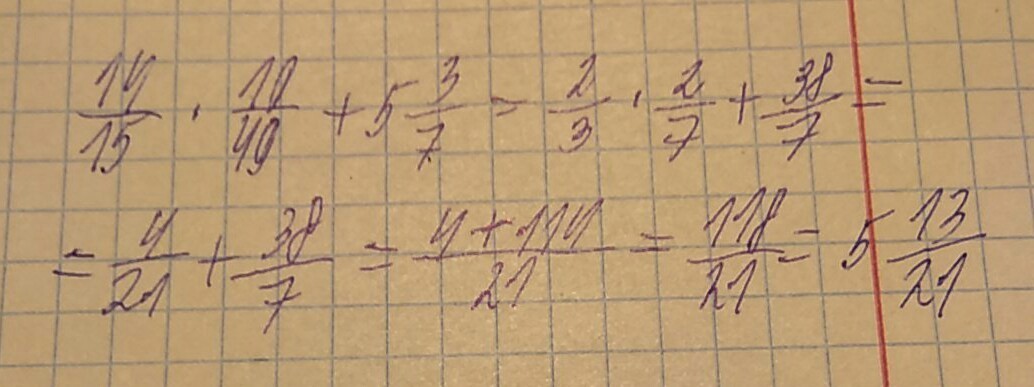 14/15 · 10/49 + 5 3/7 = 2/3 · 2/7 + 38/7 =
= 4/21 + 38/7 = (4+114)/21 = 118/21 = 5 13/21